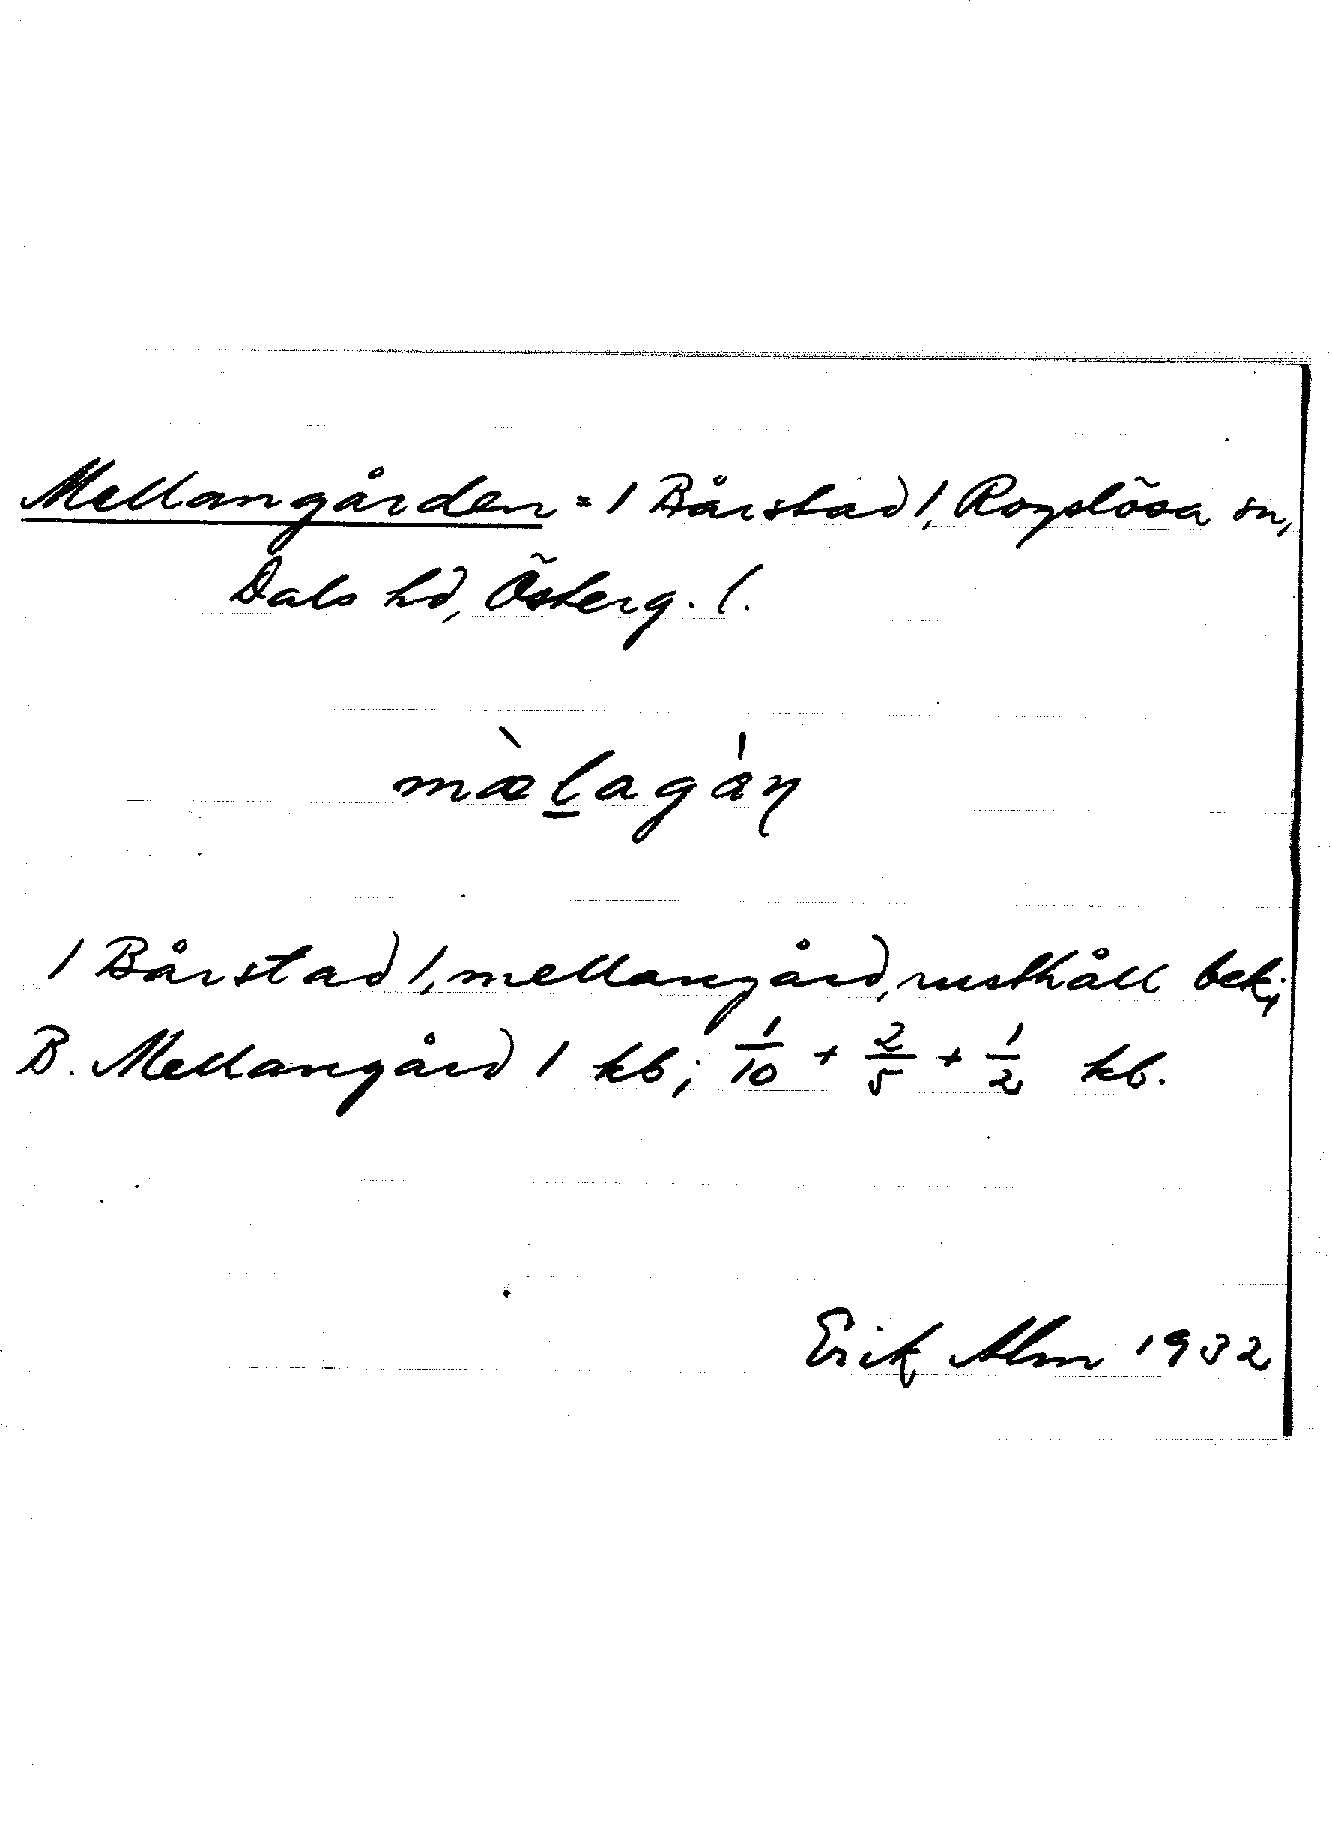 Mellangården = 1 Bårstad 1, Rogslösa sn,
Dals hd, Österg. l.
mæ̀lagán
1 Bårstad 1, mellangård, rusthåll bek;
B. Mellangård 1 kb; 1/10 + 2/5 + 1/2 kb.
Erik Alm 1932